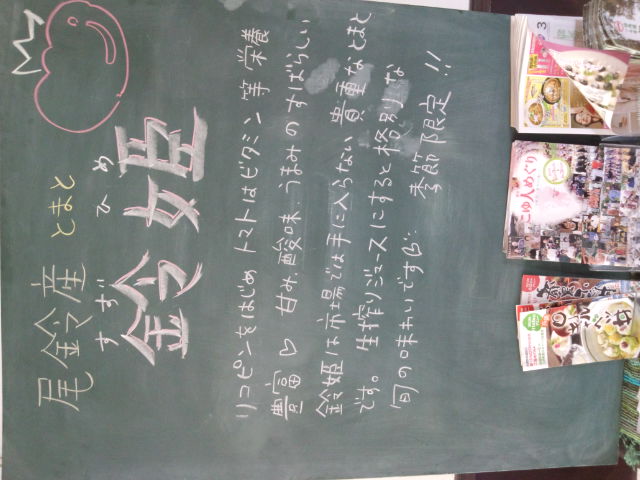 尾鈴産 とまと
すず ひめ
鈴姫
リコピンをはじめ トマトはビタミン等 栄養
豊富♡ 甘み、酸味、うまみのすばらしい
鈴姫は市場では手に入らない 貴重なとまと
です。生搾りジュースにすると格別な
旬の味わいですよ 季節限定!!
こゆ人めぐり